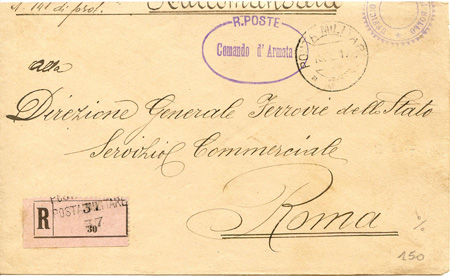 N. 141 di prot.
Raccomandata
R. POSTE
Comando d'Armata
POSTA MILITARE
alla
Direzione Generale Ferrovie dello Stato
Servizio Commerciale
Roma
R
POSTA MILITARE
37
37
30
%
150